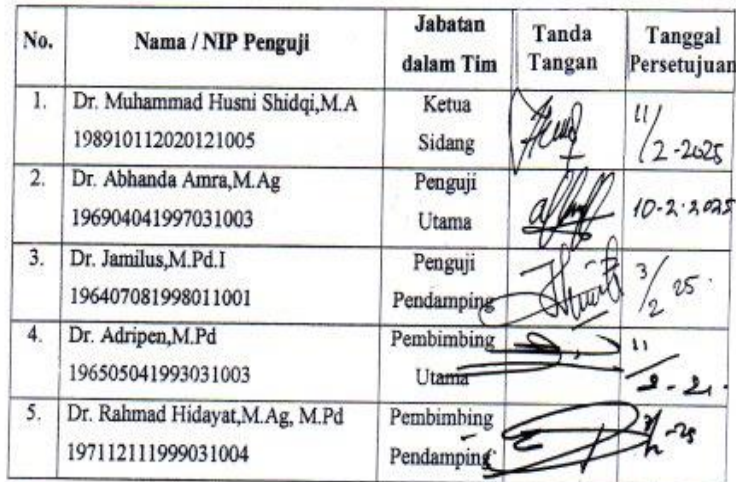 No.
Nama / NIP Penguji
Jabatan
dalam Tim
Tanda
Tangan
Tanggal
Persetujuan
1.
Dr. Muhammad Husni Shidqi,M.A
198910112020121005
Ketua
Sidang
11/2-2025
2.
Dr. Abhanda Amra,M.Ag
196904041997031003
Penguji
Utama
10-2-2025
3.
Dr. Jamilus,M.Pd.I
196407081998011001
Penguji
Pendamping
3/2 25
4.
Dr. Adripen,M.Pd
196505041993031003
Pembimbing
Utama
11
5.
Dr. Rahmad Hidayat,M.Ag, M.Pd
197112111999031004
Pembimbing
Pendamping